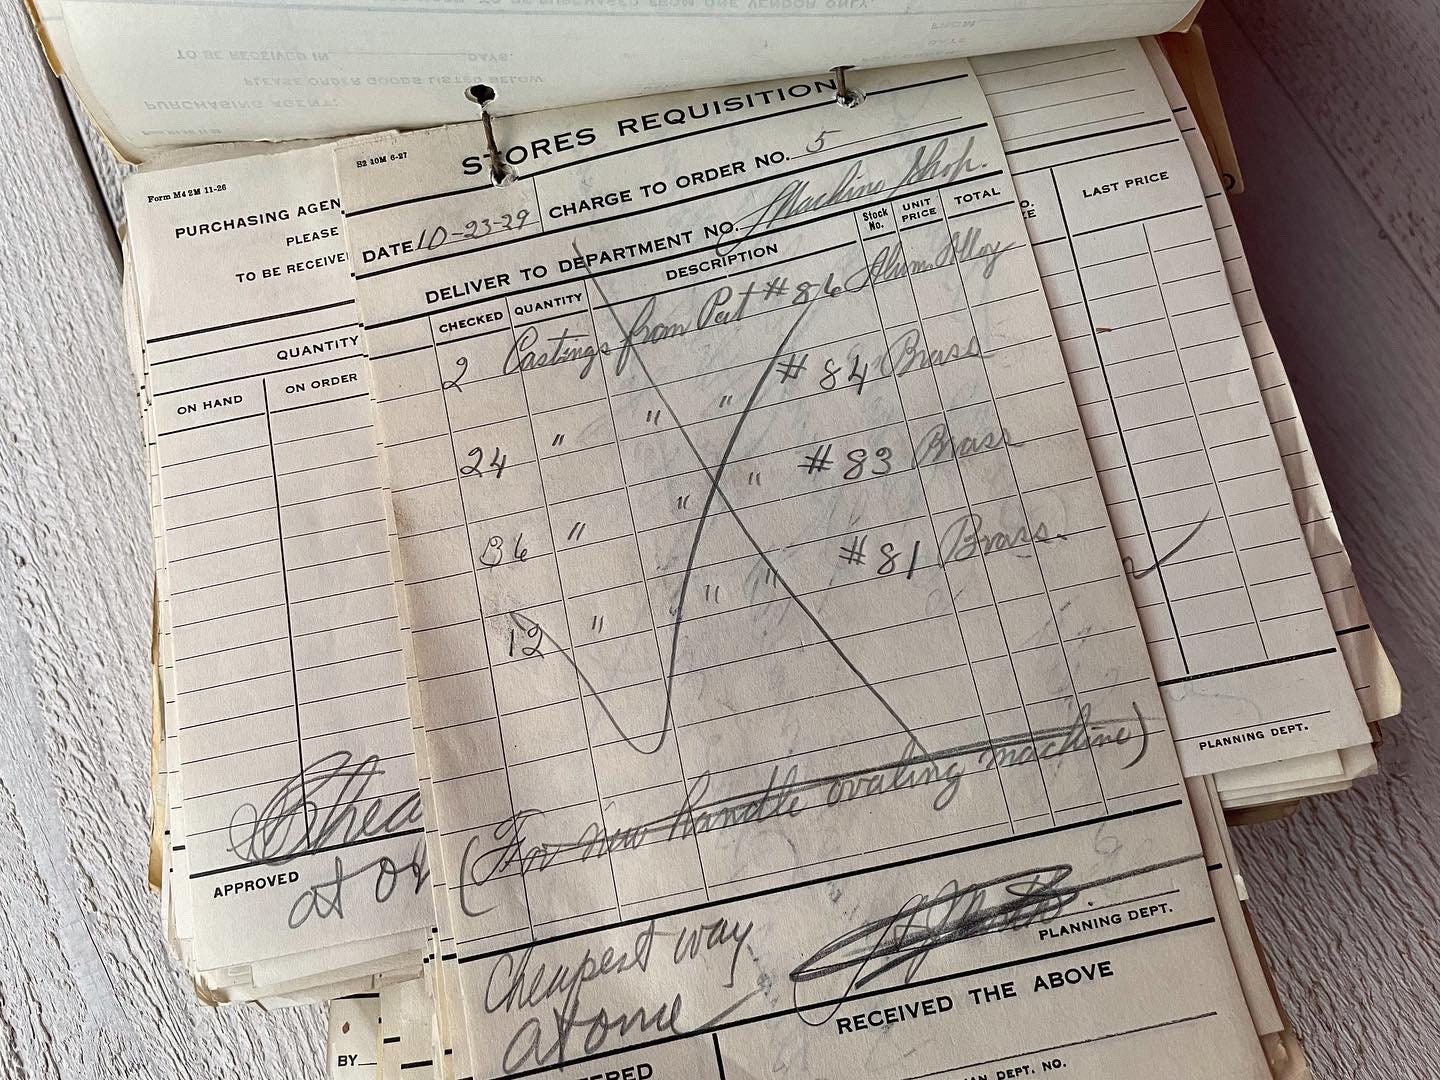 TO BE PURCHASED FROM ONE VENDOR ONLY.
FROM
TO BE RECEIVED IN DAYS.
PLEASE ORDER GOODS LISTED BELOW
PURCHASING AGENT:
Form M4 2M 11-26
PURCHASING AGEN
PLEASE
TO BE RECEIVE
QUANTITY
ON HAND ON ORDER
APPROVED
at on
S2 10M 6-27
STORES REQUISITION
CHARGE TO ORDER NO. 5
DATE 10-23-29
DELIVER TO DEPARTMENT NO. Machine Shop.
CHECKED QUANTITY DESCRIPTION Stock No. UNIT PRICE TOTAL
2 Castings from Pat #86 Alum. Alloy
24 " " " #84 Brass
36 " " " #83 Brass
12 " " " #81 Brass.
(For new handle ovaling machine)
PLANNING DEPT.
Cheapest way
at once
RECEIVED THE ABOVE
ERED
DEPT. NO.
LAST PRICE
PLANNING DEPT.
BY